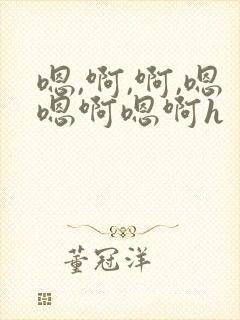 嗯,啊,啊,嗯
嗯啊嗯啊h
董冠洋